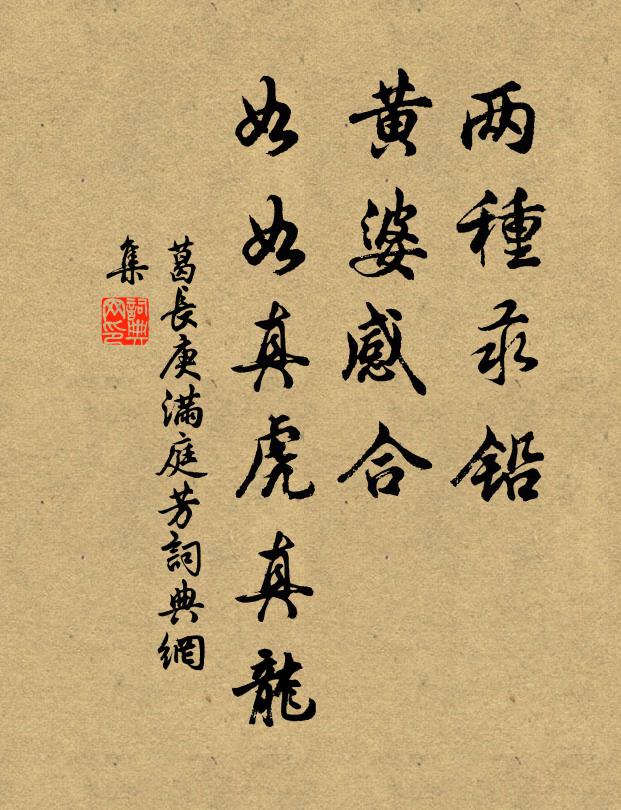 两種汞鉛
黃婆感合
如如真虎真龍
葛長庚滿庭芳詞典網
集
詞典
网印